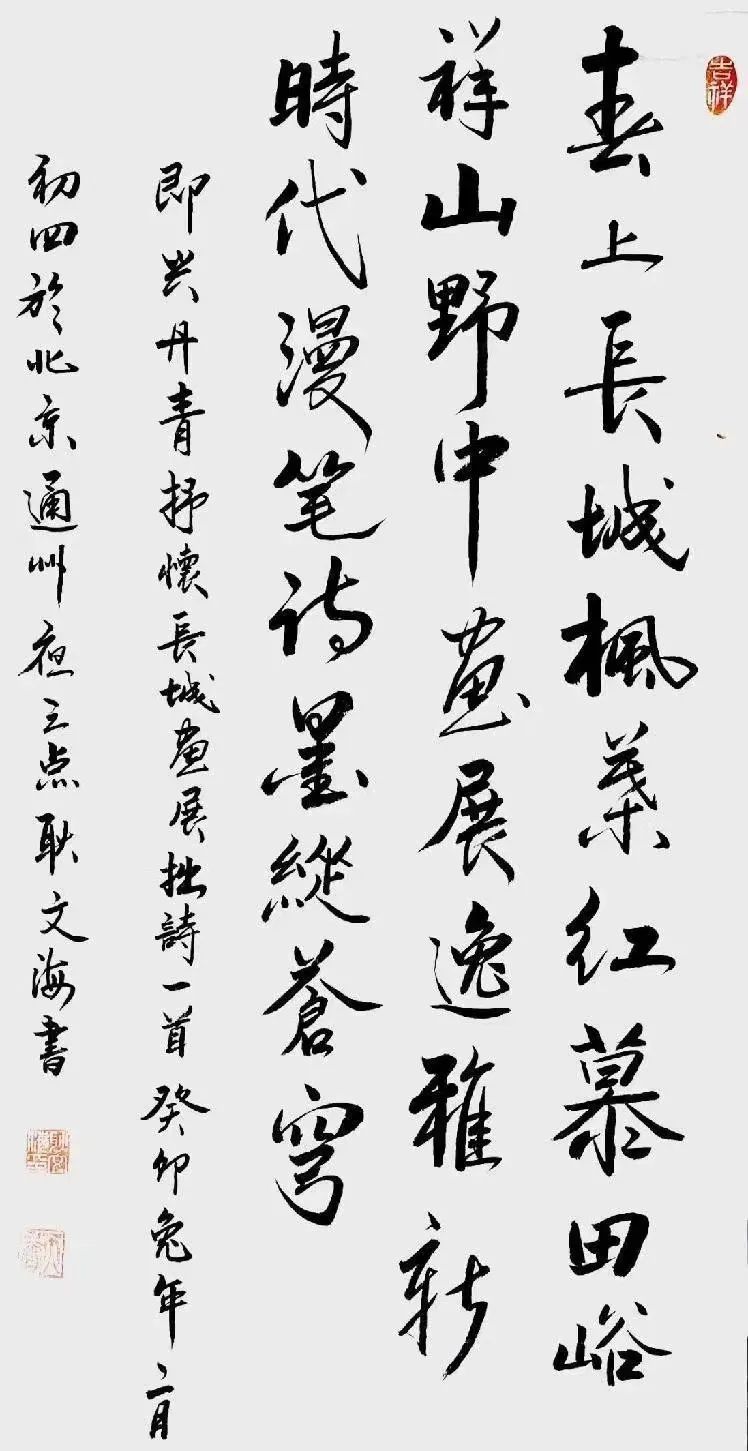 吉祥
春上長城楓葉红慕田峪
祥山野中畫展逸雅新
時代漫笔诗墨縱蒼穹
即兴丹青抒懷長城畫展拙詩一首癸卯兔年二月
初四於北京通州夜三点耿文海書